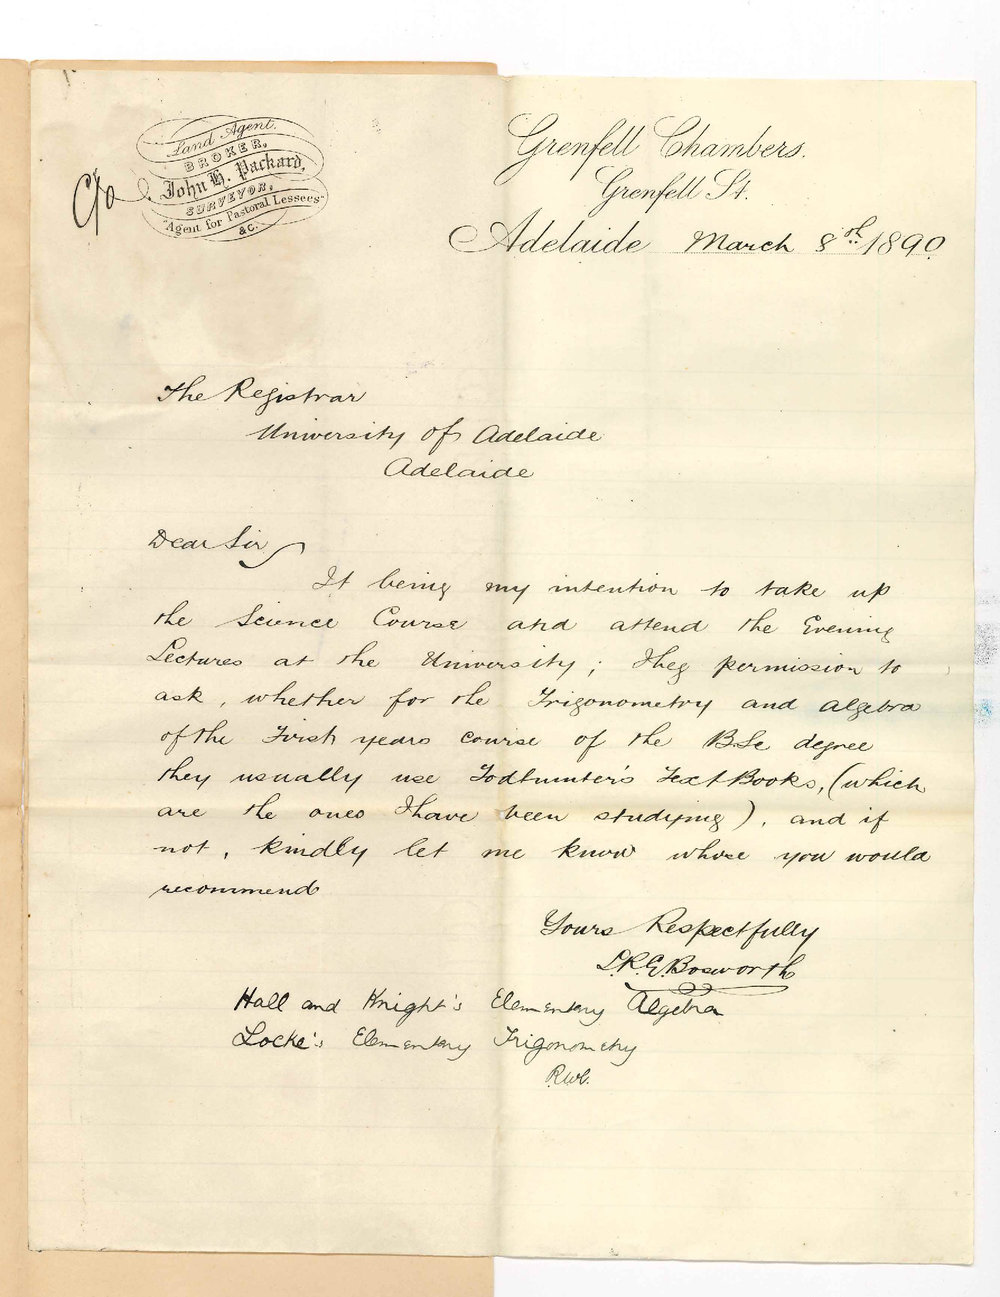 Land Agent.
BROKER,
C/o John H. Packard,
SURVEYOR,
"Agent for Pastoral Lessees"
&C.
Grenfell Chambers.
Grenfell St.
Adelaide March 8th 1890
The Registrar
University of Adelaide
Adelaide
Dear Sir
It being my intention to take up
the Science Course and attend the Evening
Lectures at the University; I beg permission to
ask, whether for the Trigonometry and Algebra
of the First years course of the B.Sc degree
they usually use Todhunter's Text Books, (which
are the ones I have been studying), and if
not, kindly let me know whose you would
recommend
Yours Respectfully
L.R.E. Bosworth
Hall and Knight's Elementary Algebra
Locke's Elementary Trigonometry